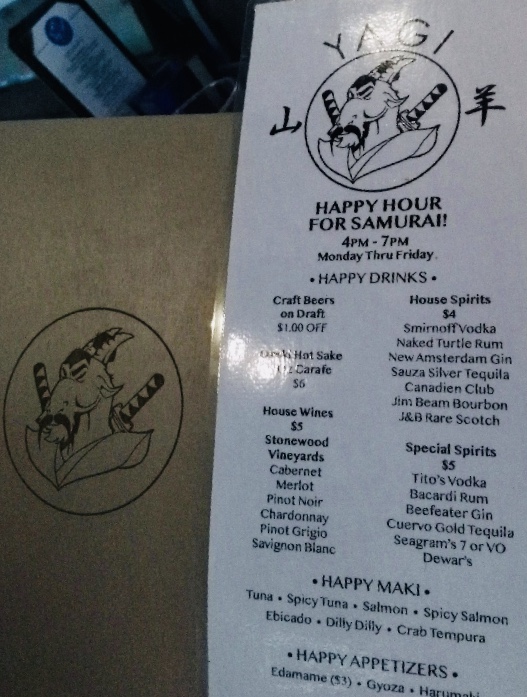 YAGI
山 羊
HAPPY HOUR
FOR SAMURAI!
4PM - 7PM
Monday Thru Friday.
• HAPPY DRINKS •
Craft Beers
on Draft
$1.00 OFF
Hot Sake
Carafe
$6
House Wines
$5
Stonewood
Vineyards
Cabernet
Merlot
Pinot Noir
Chardonnay
Pinot Grigio
Savignon Blanc
House Spirits
$4
Smirnoff Vodka
Naked Turtle Rum
New Amsterdam Gin
Sauza Silver Tequila
Canadien Club
Jim Beam Bourbon
J&B Rare Scotch
Special Spirits
$5
Tito's Vodka
Bacardi Rum
Beefeater Gin
Cuervo Gold Tequila
Seagram's 7 or VO
Dewar's
• HAPPY MAKI •
Tuna • Spicy Tuna • Salmon • Spicy Salmon
Ebicado • Dilly Dilly • Crab Tempura
• HAPPY APPETIZERS •
Edamame ($3) • Gyoza • Harumaki